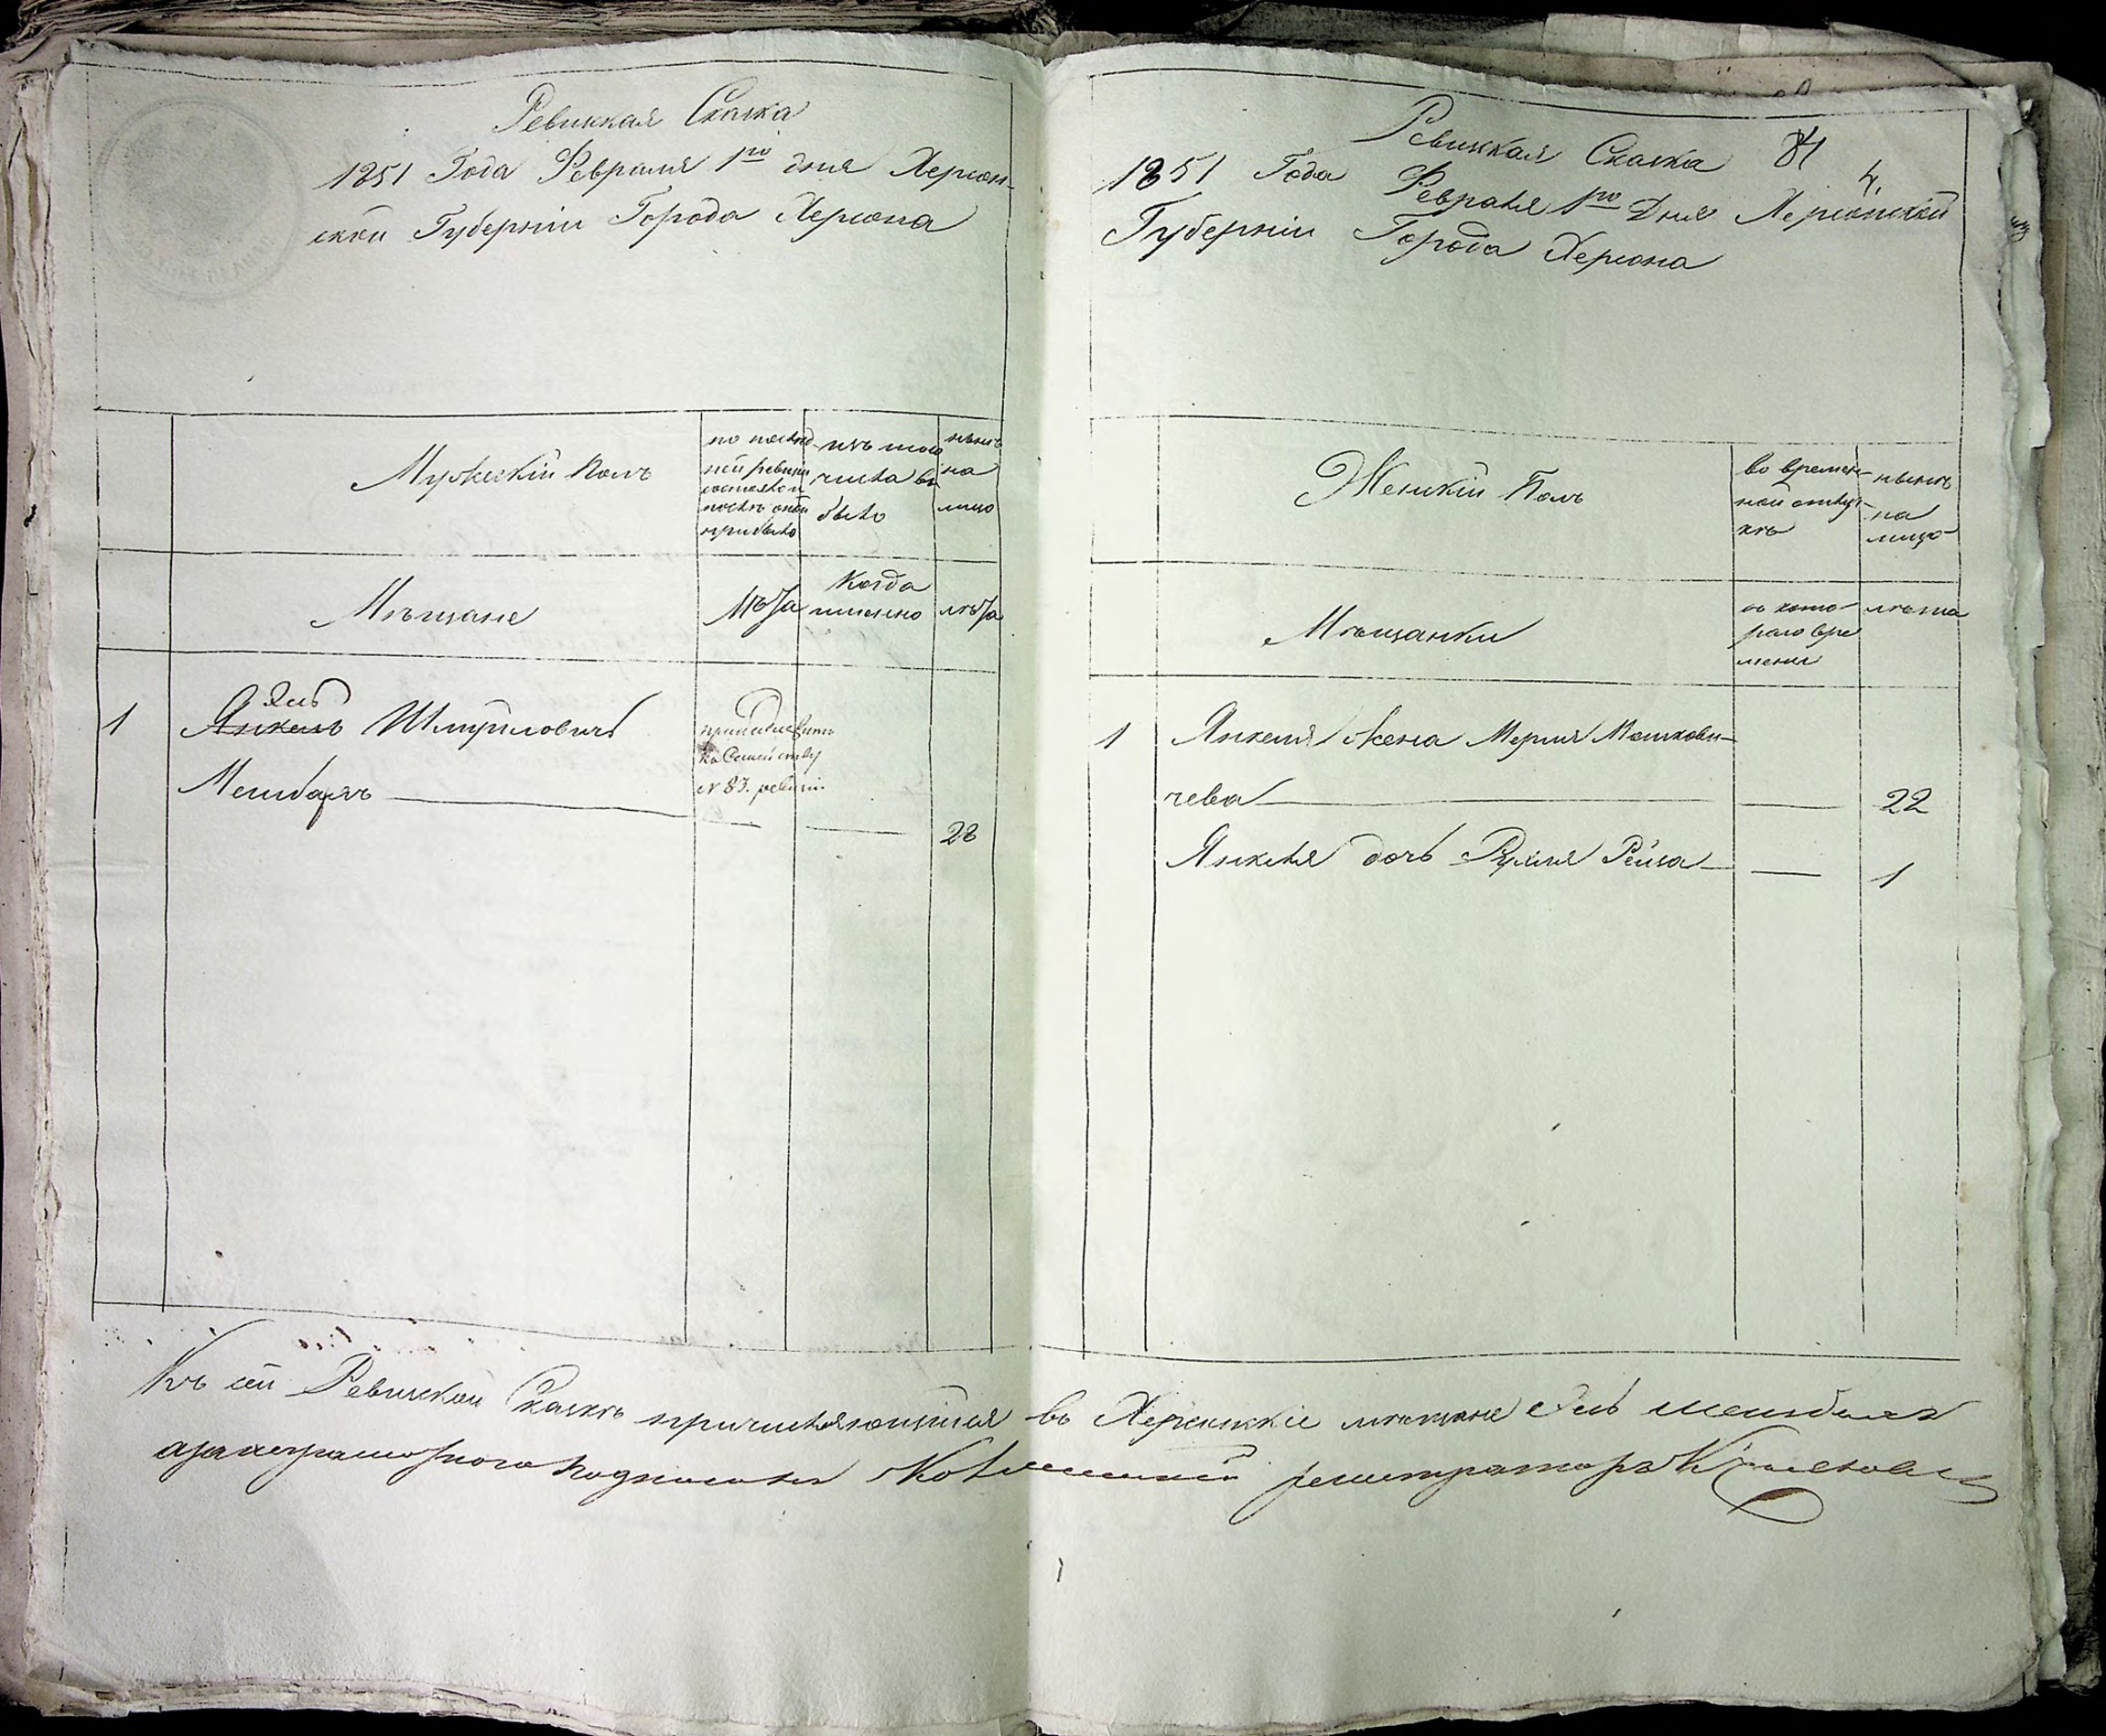 Ревижкая Сказка
1851 Года Февраля 1го дня Херсон-
ской Губерніи Города Херсона
Мужескій Полъ
по послѣд
ней ревизіи
состояло и
послѣ оной
прибыло
изъ того
числа вы
было
нынѣ
на
лицо
Мѣщане
лѣта
Когда
именно
лѣта
1
Эль
Янкель Шмуйловичъ
Мейлбаръ
принадлежитъ
къ Семейству
№ 83. ревизіи
28
Ревижкая Сказка 84
4.
1851 Года Февраля 1го Дня Херсонской
Губерніи Города Херсона
Женскій Полъ
во времен-
ной отлуч-
кѣ
нынѣ
на
лицо
Мѣщанки
съ кото-
раго вре
мени
лѣта
1 Янкеля жена Мерля Мошкови-
чева 22
Янкеля дочь Рухля Рейза 1
Къ сей Ревижкой Сказкѣ причисляющійся въ Херсонскіе мѣщане Эль
а за неграмотного подписалъ Коллежскій регистраторъ